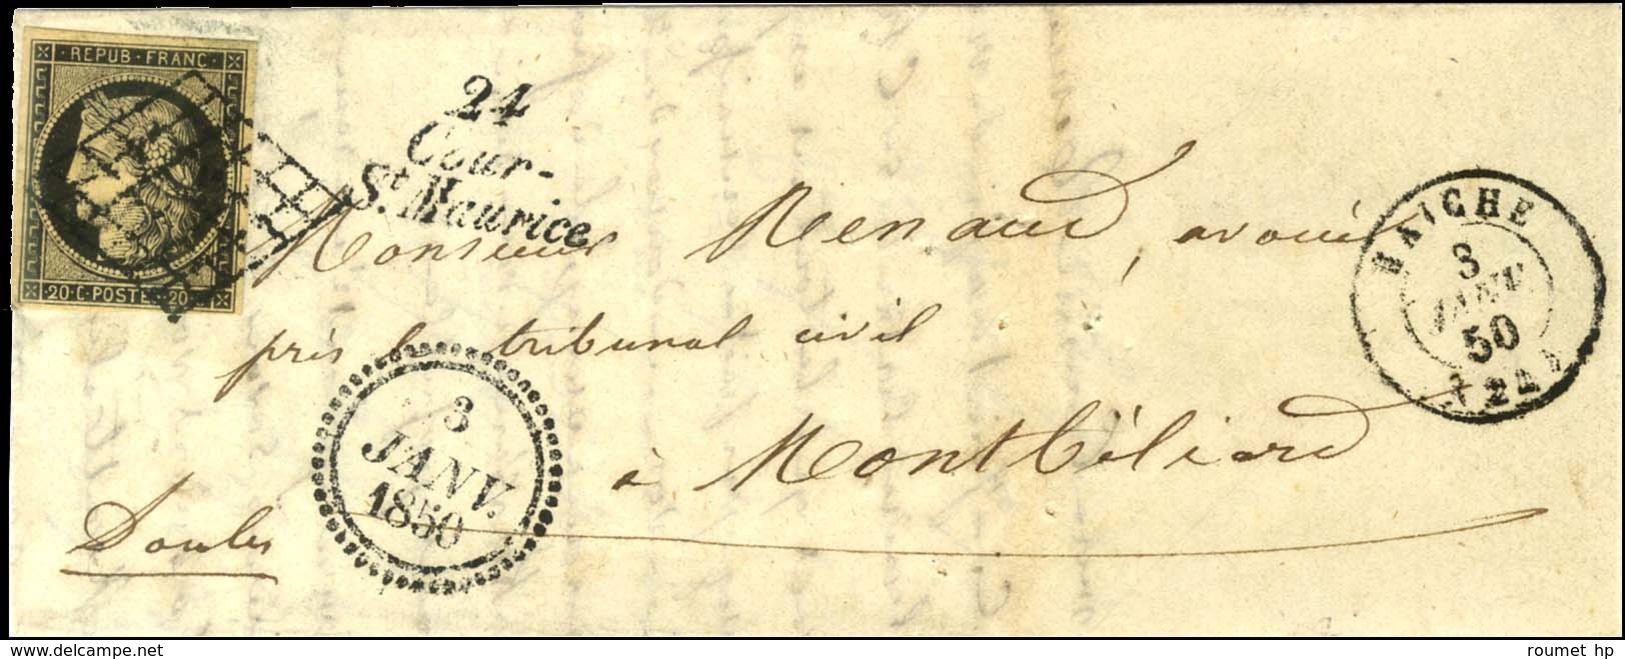 REPUB · FRANC ·
· 20 · C · POSTE · 20 ·
24
Cour-
St. Maurice
Monsieur Renaud, avoué
près le tribunal civil
à Montbéliard
3
JANV.
1850
MAICHE
3
JANV.
50
(24)
www.delcampe.net
roumet hp